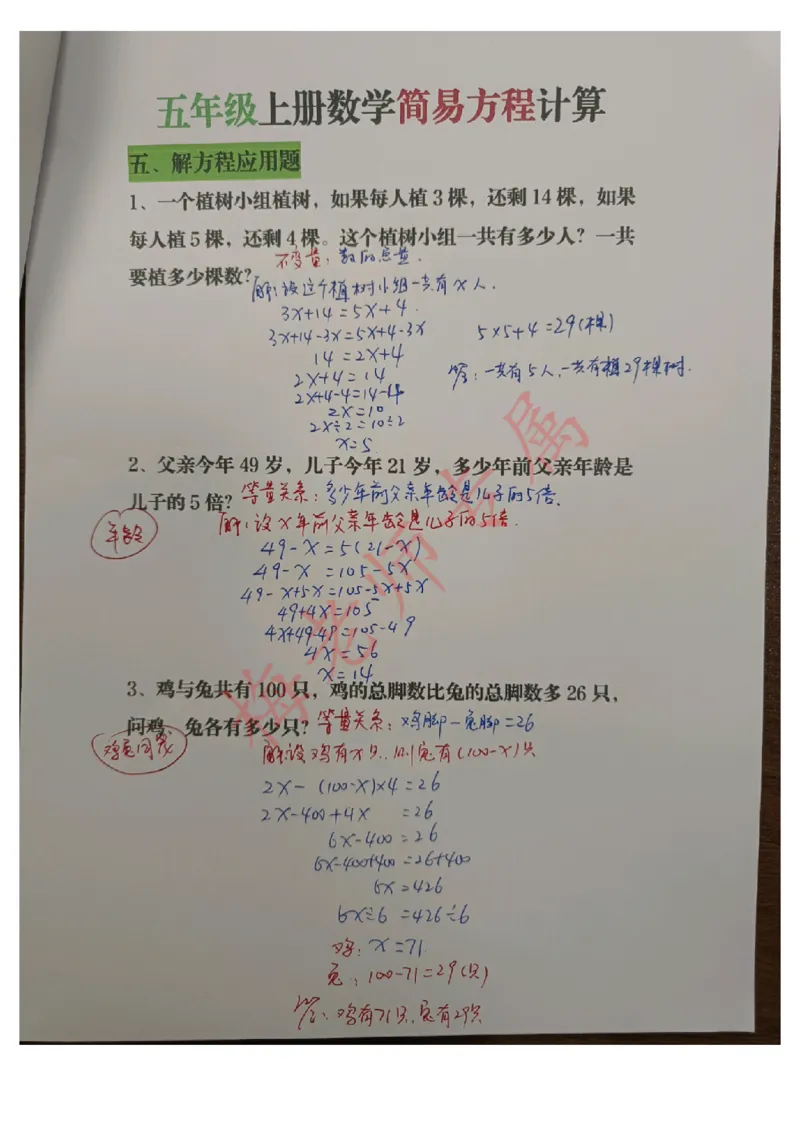 五年级上册数学简易方程计算
五、解方程应用题
1、一个植树小组植树，如果每人植 3 棵，还剩 14 棵，如果
每人植 5 棵，还剩 4 棵。这个植树小组一共有多少人？一共
不变量：数的总量.
要植多少棵数？
解：设这个植树小组一共有 x 人.
3x+14=5x+4.
3x+14-3x=5x+4-3x
14=2x+4
2x+4=14
2x+4-4=14-4
2x=10
2x÷2=10÷2
x=5.
5×5+4=29(棵)
答：一共有5人,一共有植29棵树.
2、父亲今年 49 岁，儿子今年 21 岁，多少年前父亲年龄是
儿子的 5 倍？等量关系：多少年前父亲年龄是儿子的5倍.
年龄
解：设 x 年前父亲年龄是儿子的5倍.
49-x=5(21-x)
49-x=105-5x
49-x+5x=105-5x+5x
49+4x=105
4x+49-49=105-49
4x=56
x=14
3、鸡与兔共有 100 只，鸡的总脚数比兔的总脚数多 26 只，
问鸡、兔各有多少只？等量关系：鸡脚-兔脚=26
鸡兔同笼
解：设鸡有x只.则兔有(100-x)只
2x-(100-x)×4=26
2x-400+4x=26
6x-400=26
6x-400+400=26+400
6x=426
6x÷6=426÷6
鸡：x=71.
兔：100-71=29(只)
答：鸡有71只,兔有29只
梅老师专属